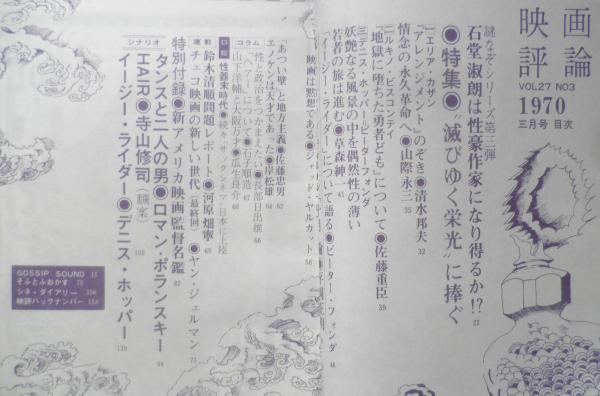 映画評論
VOL.27 NO3
1970
三月号 目次
謎なぞシリーズ第三弾
石堂淑朗は性豪作家になり得るか!? 22
●特集●“滅びゆく栄光”に捧ぐ
エリア・カザン
『アレンジメント』のぞき●清水邦夫 32
情念の永久革命へ●山際永三 35
ルキノ・ビスコンティ
『地獄に堕ちた勇者ども』について●佐藤重臣 39
ピーターフォンダ
妖艶なる風景の中を偶然性の薄い
若者の旅は進む●草森紳一 41
『イージー・ライダー』について語る●ピーター・フォンダ 44
映画は黙想である●ジャッド・ヤルカット 56
コラム
「あつい壁」と地方主義●佐藤忠男 62
エノケンは天才であった●岸松雄 64
性と政治をつかまえたい●長部日出雄 66
「ヘアー」について●石子順造 67
山下輔と大阪万才●瓜生良介 68
口絵
性器末時代●
連載
鈴木清順問題レポート●河原畑寧 69
チェコ映画の新しい世代(最終回)●ヤン・ジェルマン 73
特別付録●新アメリカ映画監督名鑑 82
シナリオ
タンスと二人の男●ロマン・ポランスキー 94
HAIR●寺山修司(翻案) 102
イージー・ライダー●デニス・ホッパー 120
GOSSIP SOUND 15
そふとふおかす 78
シネ・ダイアリー 156
映評バックナンバー 158